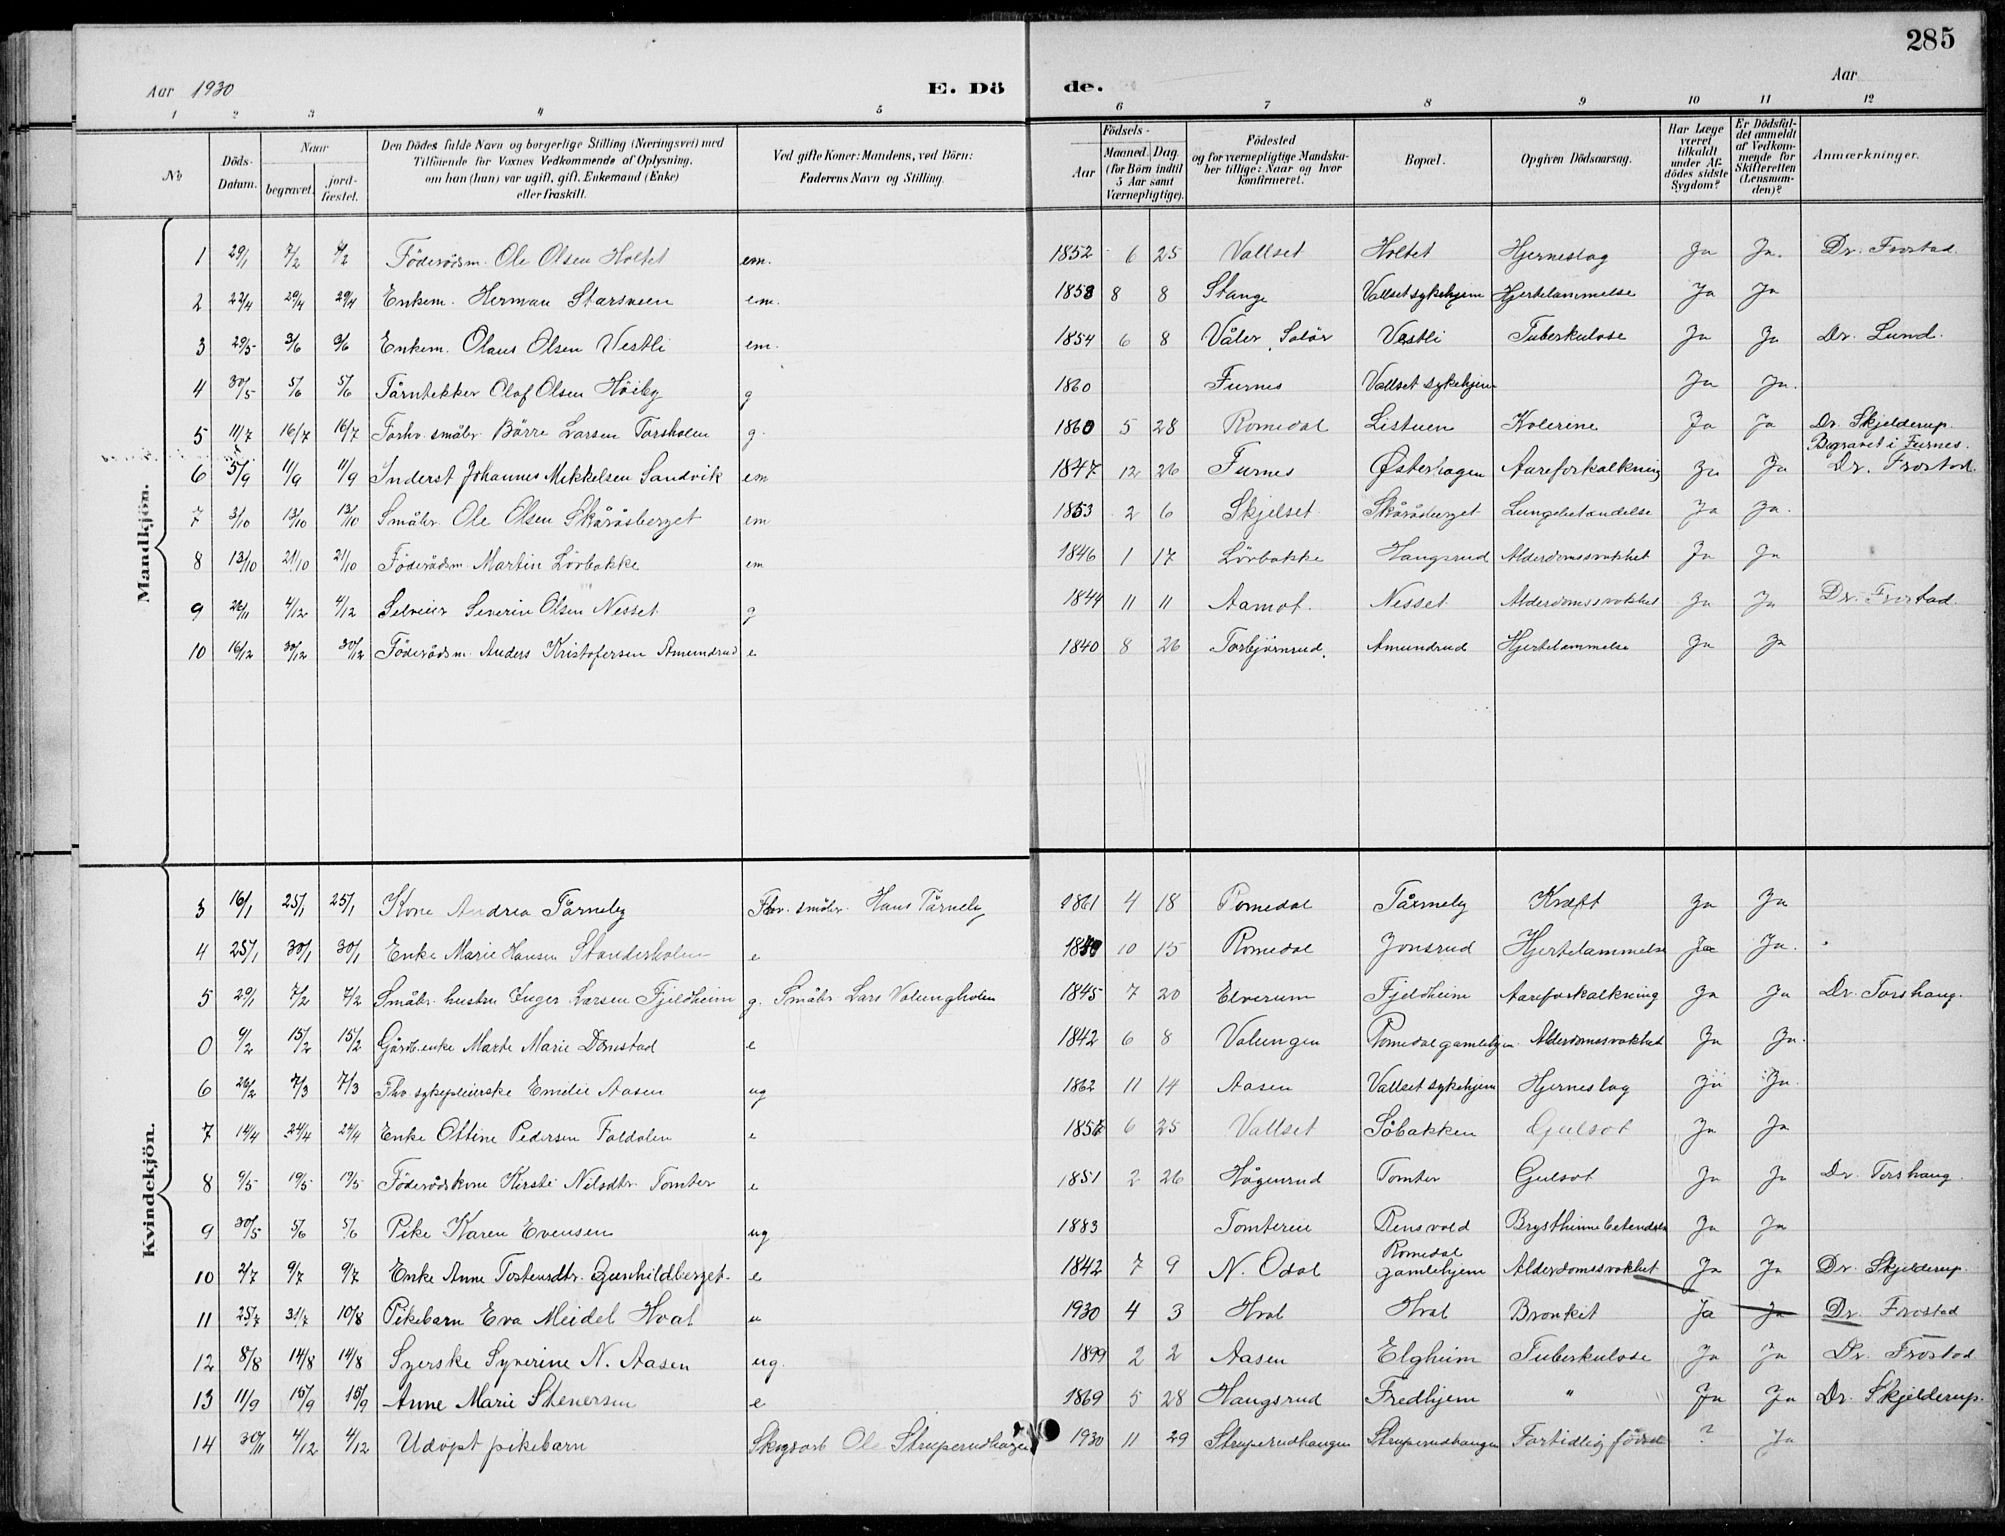 285
Aar 1930 E. Dö de. Aar
1 2 3 4 5 6 7 8 9 10 11 12
No
Döds-Datum.
Naar begravet. jordfæstet.
Den Dödes fulde Navn og borgerlige Stilling (Næringsvei) med
Tilföiende for Voxnes Vedkommende af Oplysning,
om han (hun) var ugift, gift, Enkemand (Enke)
eller fraskilt.
Ved gifte Koner: Mandens, ved Börn:
Faderens Navn og Stilling.
Födsels-
Aar Maaned. Dag.
(for Börn indtil
5 Aar samt
Værnepligtige).
Födested
og for værnepligtige Mandskaber tillige: Naar og hvor
konfirmeret.
Bopæl.
Opgiven Dödsaarsag.
Har Læge været tilkaldt under Afdödes sidste Sygdom?
Er Dödsfaldet anmeldt af Vedkommende for Skifteretten (Lensmanden)?
Anmærkninger.
Mandkjön.
1 29/1 7/2 7/2 Föderådsm. Ole Olsen Holtet em. 1852 6 25 Vallset Holtet Hjerneslag Ja Ja. Dr. Frostad
2 22/4 29/4 29/4 Enkem. Herman Starsveen em. 1858 8 8 Stange Vallset sykehjem Hjertelammelse Ja Ja
3 29/5 3/6 3/6 Enkem. Olaus Olsen Vestli em. 1854 6 8 Våler, Solör Vestli Tuberkulose Ja Ja Dr. Lund.
4 30/5 5/6 5/6 Tårntekker Olaf Olsen Höiby g 1860 Furnes Vallset sykehjem Ja Ja.
5 11/7 16/7 16/7 Forhv. småbr. Börre Larsen Torsholen g. 1860 5 28 Romedal Listuen Kolerine Ja Ja Dr. Skjelderup.
Begravet i Furnes.
6 5/9 11/9 11/9 Inderst Johannes Mikkelsen Sandvik em 1847 12 26 Furnes Østerhagen Aareforkalkning Ja Ja Dr. Frostad
7 3/10 13/10 13/10 Småbr. Ole Olsen Skåråsberget em 1853 2 6 Skjelset Skåråsberget Lungebetendelse Ja Ja.
8 13/10 21/10 21/10 Föderådsm. Martin Lövbakke em 1846 1 17 Lövbakke Haugsrud Alderdomssvakhet Ja Ja
9 4/12 4/12 Selveier Severin Olsen Nesset g 1844 11 11 Aamot. Nesset Alderdomssvakhet Ja Ja Dr. Frostad.
10 16/12 30/12 30/12 Föderådsm. Anders Kristofersen Amundrud e 1840 8 26 Torbjörnrud. Amundrud Hjertelammelse Ja Ja
Kvindekjön.
3 16/1 25/1 25/1 Kone Andrea Tårneby Fhv. småbr. Hans Tårneby 1861 4 18 Romedal Tårneby Kræft Ja Ja
4 25/1 30/1 30/1 Enke Marie Hansen Standerholen e 10 15 Romedal Jonsrud Hjertelammelse Ja Ja.
5 29/1 7/2 7/2 Småbr. hustru Inger Larsen Fjeldheim g. Småbr. Lars Volungholen 1845 7 20 Elverum Fjeldheim Aareforkalkning Ja Ja Dr. Torshaug.
0 9/2 15/2 15/2 Gårdb.enke Marte Marie Dønstad e 1842 6 8 Volungen Romedal gamlehjem Alderdomssvakhet Ja Ja.
6 26/2 7/3 7/3 Fhv. sykepleierske Emelie Aasen ug 1862 11 14 Aasen Vallset sykehjem Hjerneslag Ja Ja.
7 14/4 24/4 24/4 Enke Ottine Pedersen Foldalen e 6 25 Vallset Söbakken Gulsot Ja Ja
8 9/5 19/5 19/5 Föderådskone Kersti Nilsdtr. Tomter e 1851 2 26 Högenrud Tomter Gulsot Ja Ja Dr. Torshaug.
9 30/5 5/6 5/6 Pike Karen Evensen ug 1883 Tomtereie Rensvold Brysthinnebetendels Ja Ja
10 2/7 9/7 9/7 Enke Anne Tostensdtr. Gunhildberget. e 1842 7 9 N. Odal Romedal gamlehjem Alderdomssvakhet Ja Ja Dr. Skjelderup.
11 25/7 31/7 10/8 Pikebarn Eva Meidel Hval u 1930 4 3 Hval Hval Bronkit Ja Ja Dr. Frostad
12 8/8 14/8 14/8 Syerske Syverine N. Aasen ug. 1899 2 2 Aasen Elgheim Tuberkulose Ja Ja Dr. Frostad
13 11/9 15/9 15/9 Anne Marie Stenersen e 1869 5 28 Haugsrud Fredhjem " Ja Ja Dr. Skjelderup.
14 30/11 4/12 4/12 Udöpt pikebarn Skogsarb. Ole Struperudhagen 1930 11 29 Struperudhaugen Struperudhaugen Fortidlig födsel ? Ja